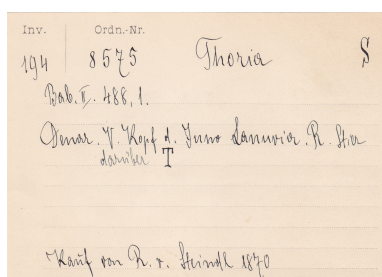 Inv. Ordn.-Nr.
194 8575 Thoria S
Bab. II. 488, 1.
Denar. V. Kopf d. Juno Lanuvia. R. Stier
darüber T
Kauf von R. v. Steindl 1870